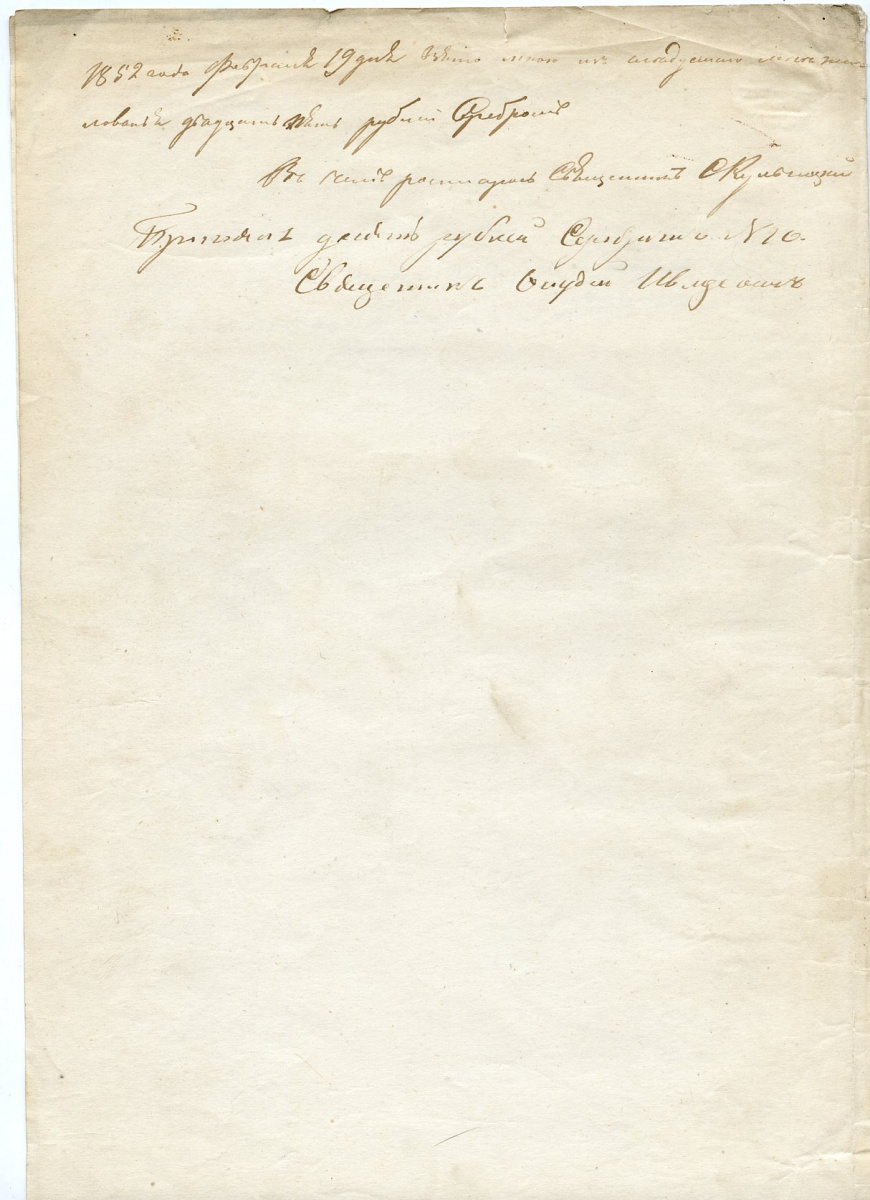 1852 года Февраля 19 дня взято мною из следуемаго мне жа-
лованья двадцать пять рублей Серебромъ
Въ чемъ росписуюсь Священникъ С Кульчицкий
десять рублей Серебромъ N 10.
Священникъ